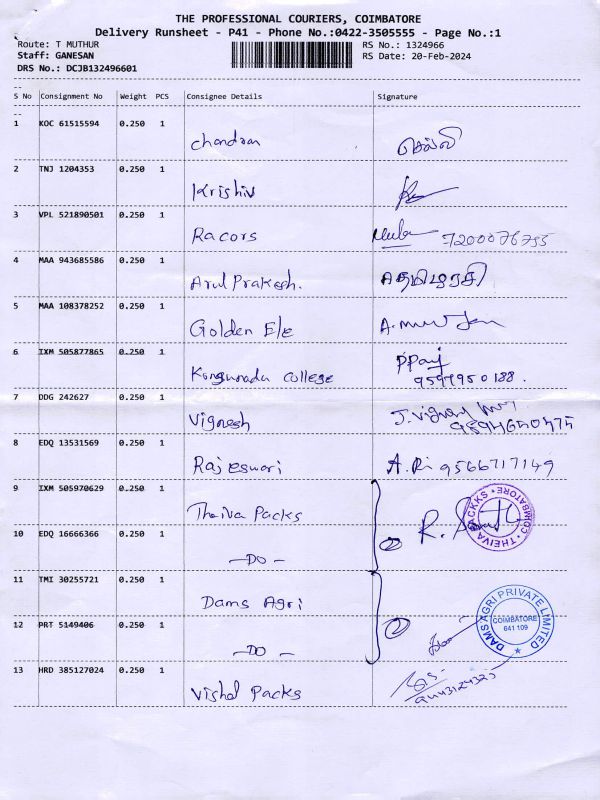 THE PROFESSIONAL COURIERS, COIMBATORE
Delivery Runsheet - P41 - Phone No.:0422-3505555 - Page No.:1
Route: T MUTHUR RS No.: 1324966
Staff: GANESAN RS Date: 20-Feb-2024
DRS No.: DCJB132496601
--
S No Consignment No Weight PCS Consignee Details Signature
--
1 KOC 61515594 0.250 1 Chandran செல்வி
2 TNJ 1204353 0.250 1 Krishiv
3 VPL 521890501 0.250 1 Racors 7200076755
4 MAA 943685586 0.250 1 Arul Prakesh. தமிழரசி
5 MAA 108378252 0.250 1 Golden Ele
6 IXM 505877865 0.250 1 Kongunadu college
9597950188.
7 DDG 242627 0.250 1 Vignesh J. Vignesh
8 EDQ 13531569 0.250 1 Rajeswari 9566717149
9 IXM 505970629 0.250 1 Theiva Packs
THEIVA PACKKS * COIMBATORE *
10 EDQ 16666366 0.250 1 —DO—
11 TMI 30255721 0.250 1 Dams Agri
DAMS AGRI PRIVATE LIMITED
COIMBATORE
641 109
12 PRT 5149406 0.250 1 —DO—
13 HRD 385127024 0.250 1 Vishal Packs